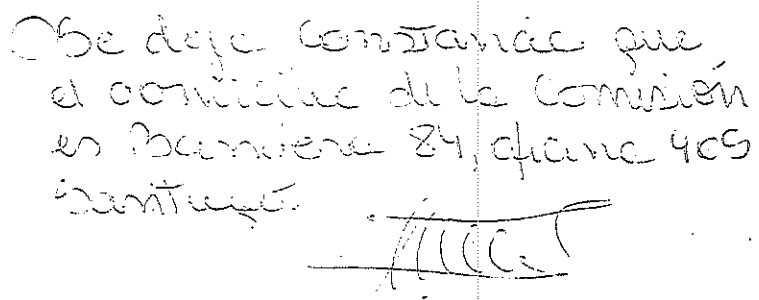 Se deja constancia que
el domicilio de la Comisión
es Bandera 84, oficina 405
Santiago.